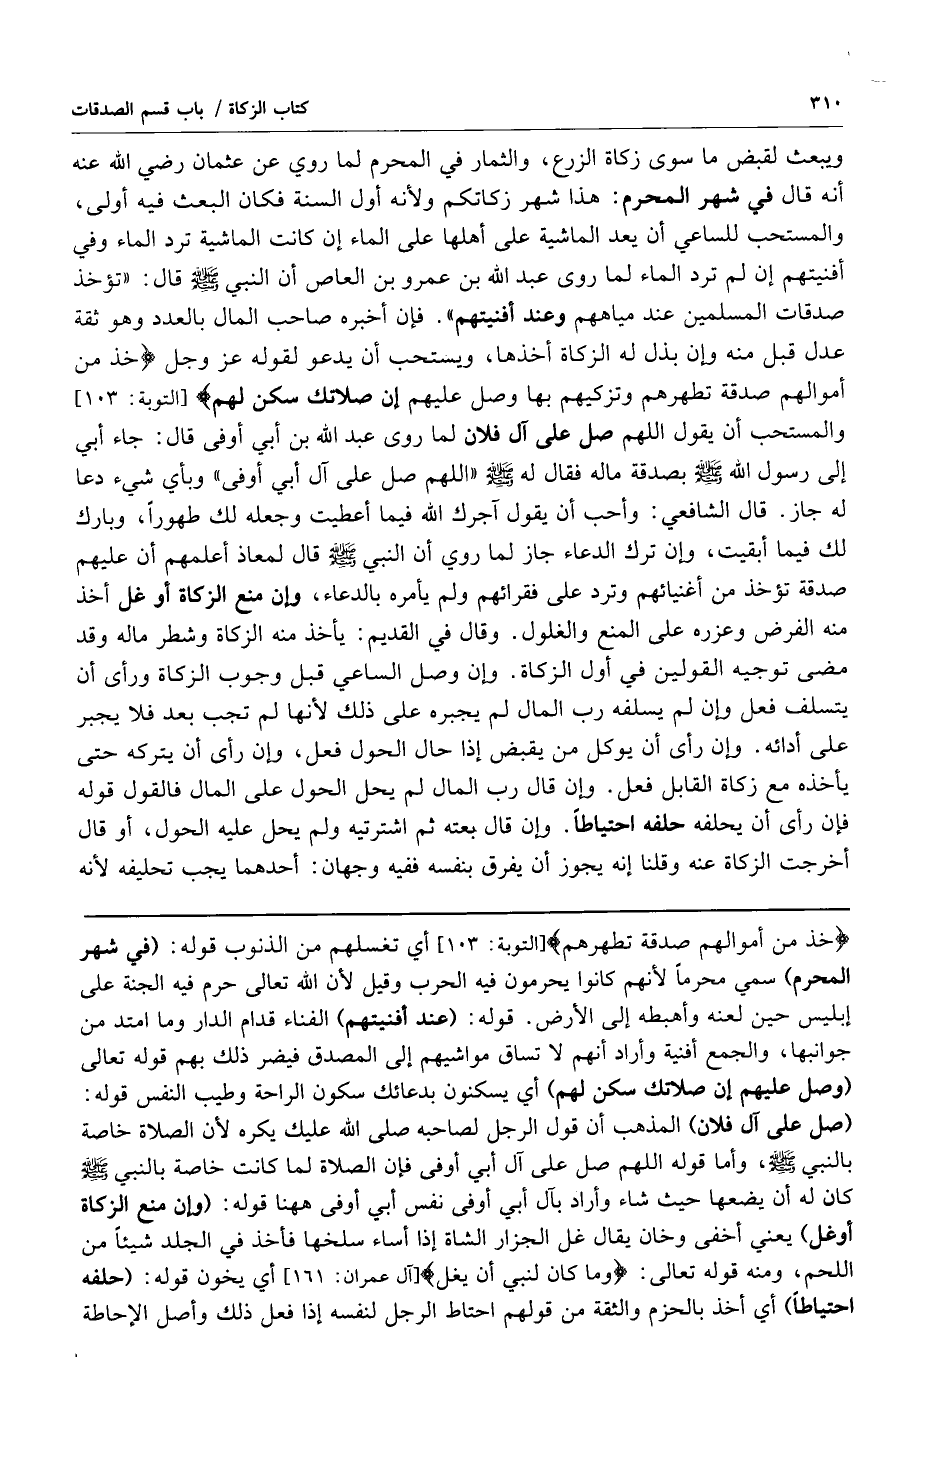 ٣١٠ كتاب الزكاة / باب قسم الصدقات
ويبعث لقبض ما سوى زكاة الزرع، والثمار في المحرم لما روي عن عثمان رضي الله عنه
أنه قال في شهر المحرم: هذا شهر زكاتكم ولأنه أول السنة فكان البعث فيه أولى،
والمستحب للساعي أن يعد الماشية على أهلها على الماء إن كانت الماشية ترد الماء وفي
أفنيتهم إن لم ترد الماء لما روى عبد الله بن عمرو بن العاص أن النبي ﷺ قال: «تؤخذ
صدقات المسلمين عند مياههم وعند أفنيتهم». فإن أخبره صاحب المال بالعدد وهو ثقة
عدل قبل منه وإن بذل له الزكاة أخذها، ويستحب أن يدعو لقوله عز وجل ﴿خذ من
أموالهم صدقة تطهرهم وتزكيهم بها وصل عليهم إن صلاتك سكن لهم﴾ [التوبة: ١٠٣]
والمستحب أن يقول اللهم صل على آل فلان لما روى عبد الله بن أبي أوفى قال: جاء أبي
إلى رسول الله ﷺ بصدقة ماله فقال له ﷺ «اللهم صل على آل أبي أوفى» وبأي شيء دعا
له جاز. قال الشافعي: وأحب أن يقول آجرك الله فيما أعطيت وجعله لك طهوراً، وبارك
لك فيما أبقيت، وإن ترك الدعاء جاز لما روي أن النبي ﷺ قال لمعاذ أعلمهم أن عليهم
صدقة تؤخذ من أغنيائهم وترد على فقرائهم ولم يأمره بالدعاء، وإن منع الزكاة أو غل أخذ
منه الفرض وعزره على المنع والغلول. وقال في القديم: يأخذ منه الزكاة وشطر ماله وقد
مضى توجيه القولين في أول الزكاة. وإن وصل الساعي قبل وجوب الزكاة ورأى أن
يتسلف فعل وإن لم يسلفه رب المال لم يجبره على ذلك لأنها لم تجب بعد فلا يجبر
على أدائه. وإن رأى أن يوكل من يقبض إذا حال الحول فعل، وإن رأى أن يتركه حتى
يأخذه مع زكاة القابل فعل. وإن قال رب المال لم يحل الحول على المال فالقول قوله
فإن رأى أن يحلفه حلفه احتياطاً. وإن قال بعته ثم اشتريته ولم يحل عليه الحول، أو قال
أخرجت الزكاة عنه وقلنا إنه يجوز أن يفرق بنفسه ففيه وجهان: أحدهما يجب تحليفه لأنه
﴿خذ من أموالهم صدقة تطهرهم﴾[التوبة: ١٠٣] أي تغسلهم من الذنوب قوله: (في شهر
المحرم) سمي محرماً لأنهم كانوا يحرمون فيه الحرب وقيل لأن الله تعالى حرم فيه الجنة على
إبليس حين لعنه وأهبطه إلى الأرض. قوله: (عند أفنيتهم) الفناء قدام الدار وما امتد من
جوانبها، والجمع أفنية وأراد أنهم لا تساق مواشيهم إلى المصدق فيضر ذلك بهم قوله تعالى
(وصل عليهم إن صلاتك سكن لهم) أي يسكنون بدعائك سكون الراحة وطيب النفس قوله:
(صل على آل فلان) المذهب أن قول الرجل لصاحبه صلى الله عليك يكره لأن الصلاة خاصة
بالنبي ﷺ، وأما قوله اللهم صل على آل أبي أوفى فإن الصلاة لما كانت خاصة بالنبي ﷺ
كان له أن يضعها حيث شاء وأراد بآل أبي أوفى نفس أبي أوفى ههنا قوله: (وإن منع الزكاة
أوغل) يعني أخفى وخان يقال غل الجزار الشاة إذا أساء سلخها فأخذ في الجلد شيئاً من
اللحم، ومنه قوله تعالى: ﴿وما كان لنبي أن يغل﴾[آل عمران: ١٦١] أي يخون قوله: (حلفه
احتياطاً) أي أخذ بالحزم والثقة من قولهم احتاط الرجل لنفسه إذا فعل ذلك وأصل الإحاطة